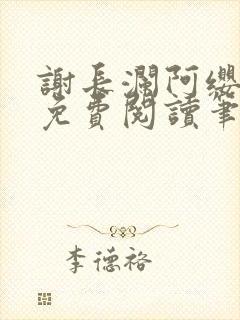 謝長瀾阿纓
免費閱讀筆
李德裕